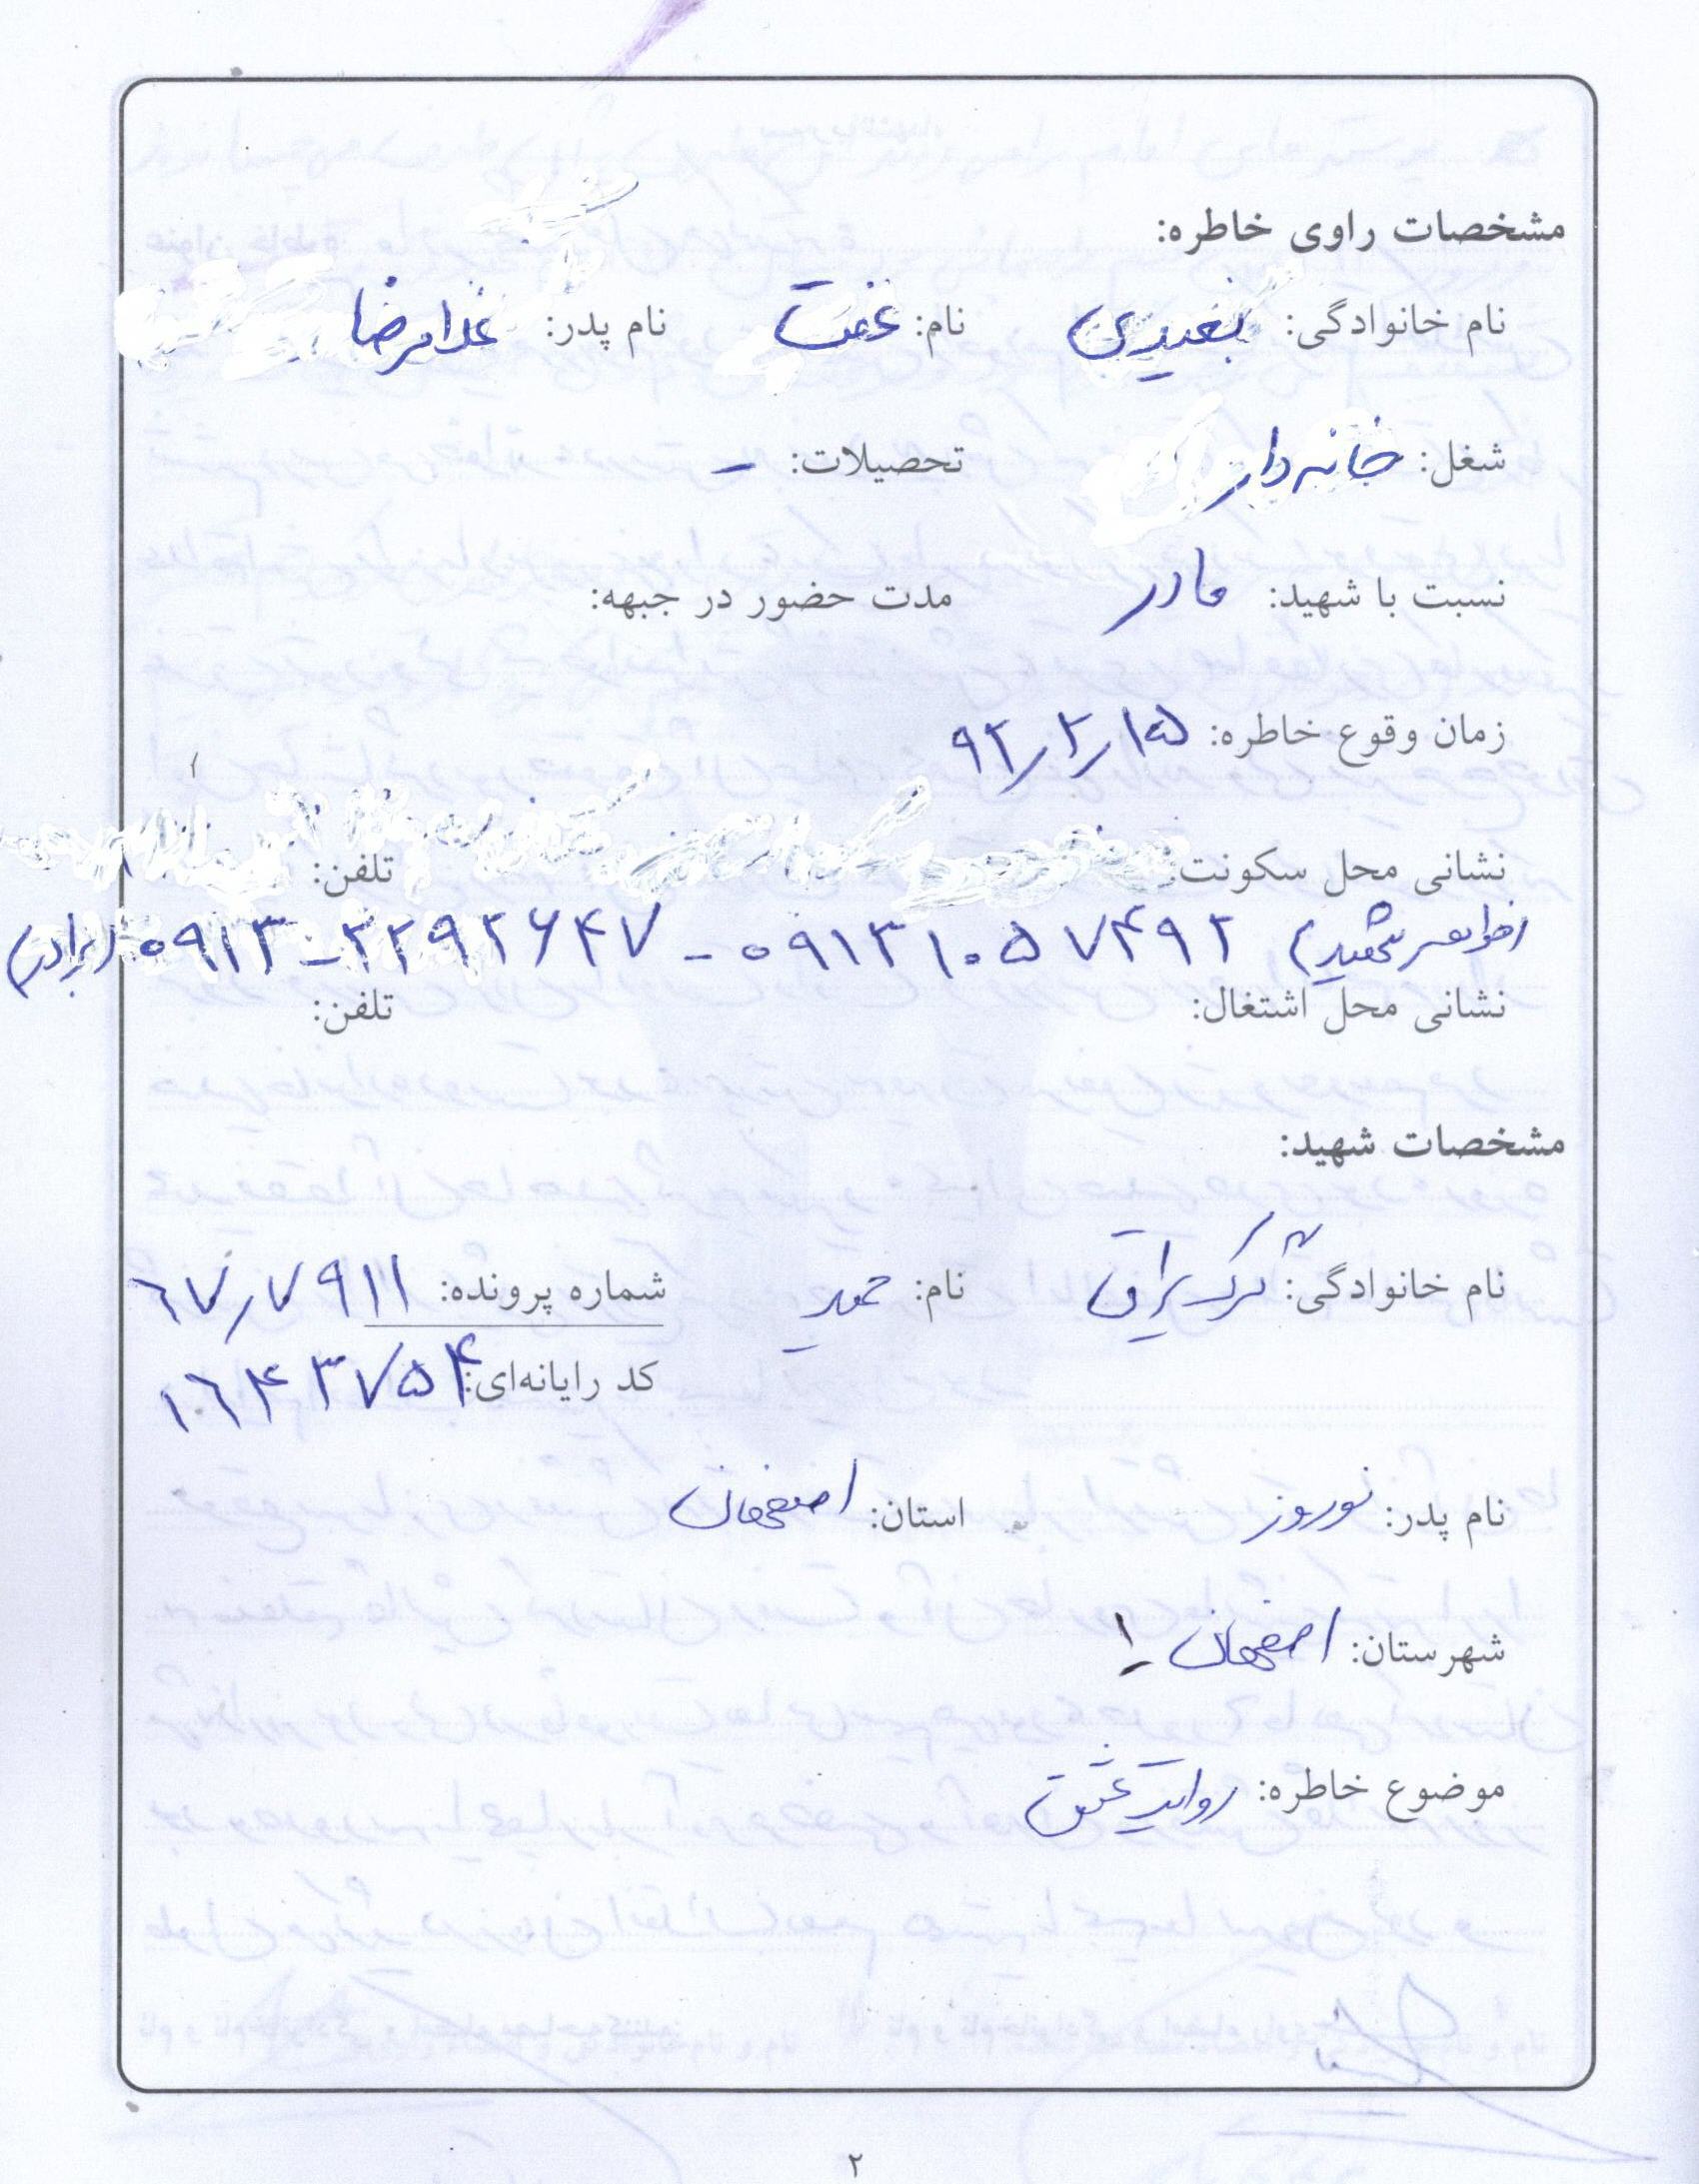 مشخصات راوی خاطره:
نام خانوادگی: نام: عفت نام پدر: غلامرضا
شغل: خانه‌دار تحصیلات: -
نسبت با شهید: مادر مدت حضور در جبهه:
زمان وقوع خاطره: ۹۲/۲/۱۵
نشانی محل سکونت: تلفن:
(خواهر شهید) ۰۹۱۳۱۰۵۷۴۹۲ - ۰۹۱۳-۲۲۹۲۶۴۷ (برادر)
نشانی محل اشتغال: تلفن:
مشخصات شهید:
نام خانوادگی: ترک براتی نام: حمید شماره پرونده: ۶۷/۷۹۱۱
کد رایانه‌ای: ۱۰۶۴۳۷۵۴
نام پدر: نوروز استان: اصفهان
شهرستان: اصفهان ۱
موضوع خاطره: روایت عشق
۲